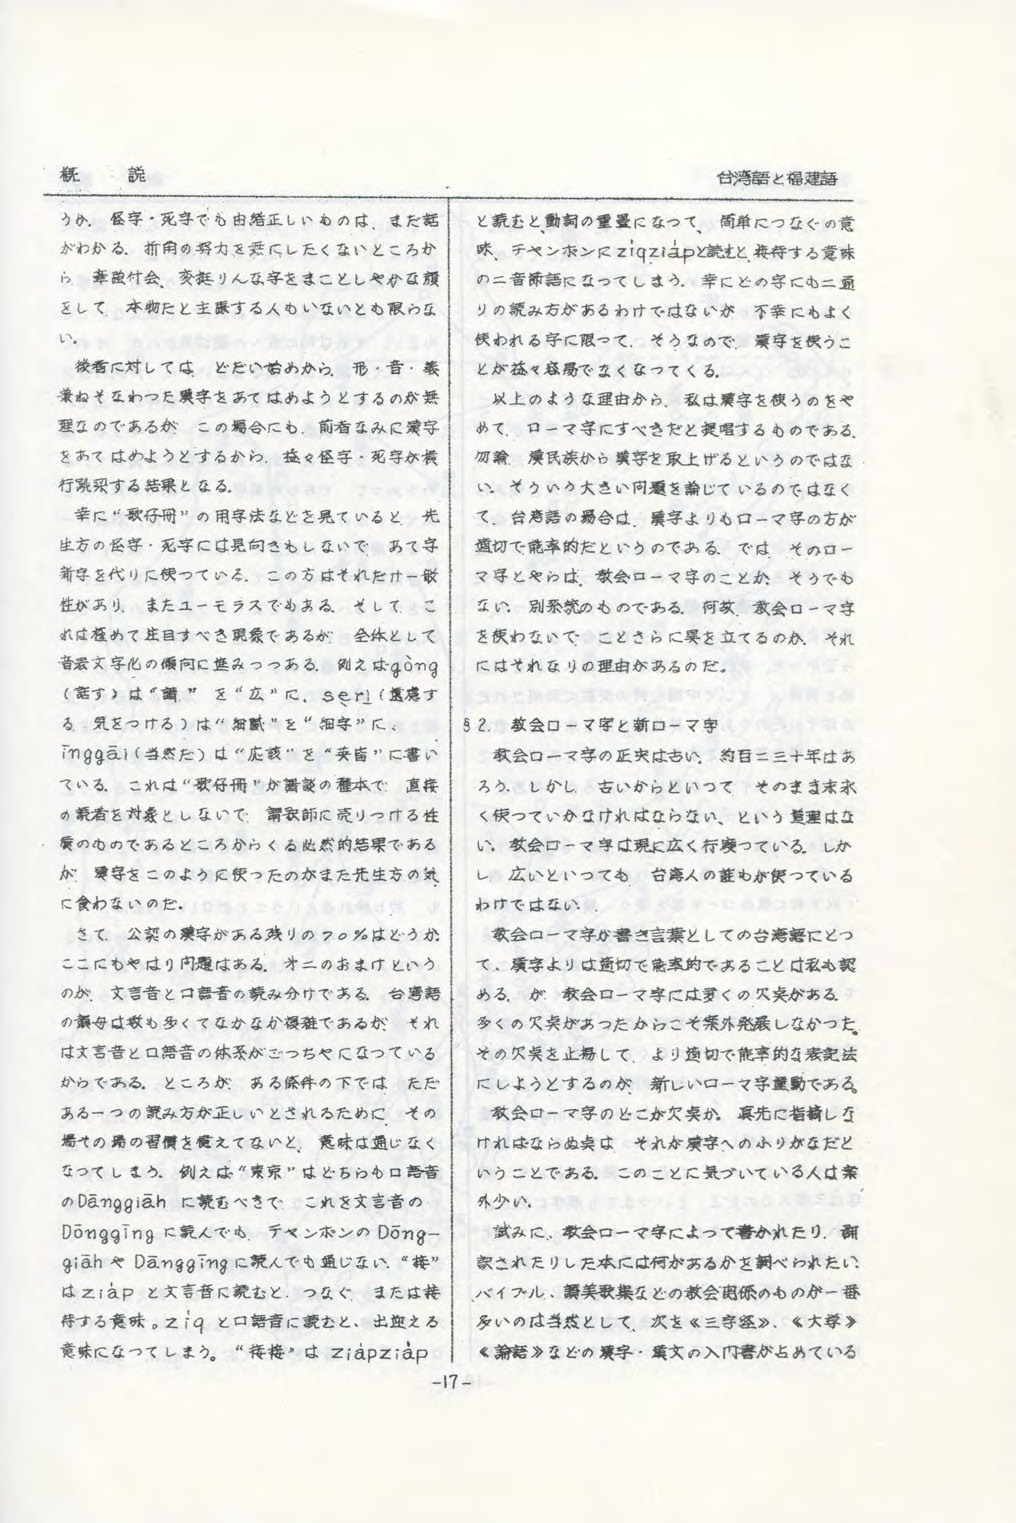 概　説
台湾語と福建語
うか．怪字・死字でも由緒正しいものは，まだ話
がわかる．折角の努力を無にしたくないところか
ら，牽強付会，変挺りんな字をまことしやかな顔
をして，本物だと主張する人もいないとも限らな
い．
後者に対しては，どだい始めから，形・音・義
兼ねそなわった漢字をあてはめようとするのが無
理なのであるが，この場合にも，前者なみに漢字
をあてはめようとするから，益々怪字・死字が横
行跳梁する結果となる．
幸に“歌仔冊”の用字法などを見ていると，先
生方の怪字・死字には見向きもしないで，あて字
新字を代りに使っている．この方はそれだけ一般
性があり，またユーモラスでもある．そして，こ
れは極めて注目すべき現象であるが，全体として
音表文字化の傾向に進みつつある．例えばgòng
（話す）は“講”を“広”に，seri（遠慮す
る，気をつける）は“細膩”を“細字”に，
īnggāi（当然だ）は“応該”を“英皆”に書い
ている．これは“歌仔冊”が講談の種本で，直接
の読者を対象としないで，講釈師に売りつける性
質のものであるところからくる必然的結果である
が，漢字をこのように使ったのがまた先生方の気
に食わないのだ．
さて，公認の漢字がある残りの70％はどうか．
ここにもやはり問題はある．オニのおまけという
のが，文言音と口語音の読み分けである．台湾語
の韻母は数も多くてなかなか複雑であるが，それ
は文言音と口語音の体系がごっちゃになっている
からである．ところが，ある條件の下では，ただ
ある一つの読み方が正しいとされるために，その
場その場の習慣を憶えてないと，意味は通じなく
なってしまう．例えば“東京”はどちらも口語音
のDānggiāh に読むべきで，これを文言音の
Dōnggīng に読んでも，チャンポンのDōng-
giāh や Dānggīng に読んでも通じない．“接”
は ziáp と文言音に読むと，つなぐ，または接
待する意味。ziq と口語音に読むと、出迎える
意味になってしまう。“接接”は ziápziáp
と読むと，動詞の重畳になって，簡単につなぐの意
味，チャンポンに ziqziáp と読むと，接待する意味
の二音節語になってしまう．幸にどの字にも二通
りの読み方があるわけではないが，不幸にもよく
使われる字に限って，そうなので，漢字を使うこ
とが益々容易でなくなってくる．
以上のような理由から，私は漢字を使うのをや
めて，ローマ字にすべきだと提唱するものである．
勿論，漢民族から漢字を取上げるというのではな
い．そういう大きい問題を論じているのではなく
て，台湾語の場合は，漢字よりもローマ字の方が
適切で能率的だというのである．では，そのロー
マ字とやらは，教会ローマ字のことか．そうでも
ない．別系統のものである．何故，教会ローマ字
を使わないで，ことさらに異を立てるのか．それ
にはそれなりの理由があるのだ．
§2．教会ローマ字と新ローマ字
教会ローマ字の歴史は古い．約百二三十年はあ
ろう．しかし，古いからといって，そのまま末永
く使っていかなければならない，という道理はな
い．教会ローマ字は現に広く行渡っている．しか
し，広いといっても，台湾人の誰もが使っている
わけではない．
教会ローマ字が書き言葉としての台湾語にとっ
て，漢字よりは適切で能率的であることは私も認
める．が，教会ローマ字には多くの欠点がある．
多くの欠点があったからこそ案外発展しなかった．
その欠点を止揚して，より適切で能率的な表記法
にしようとするのが，新しいローマ字運動である．
教会ローマ字のどこが欠点か．真先に指摘しな
ければならぬ点は，それが漢字へのふりがなだと
いうことである．このことに気づいている人は案
外少い．
試みに，教会ローマ字によって書かれたり，翻
訳されたりした本には何があるかを調べられたい．
バイブル，讃美歌集などの教会関係のものが一番
多いのは当然として，次を《三字経》、《大学》
《論語》などの漢字・漢文の入門書が占めている
-17-